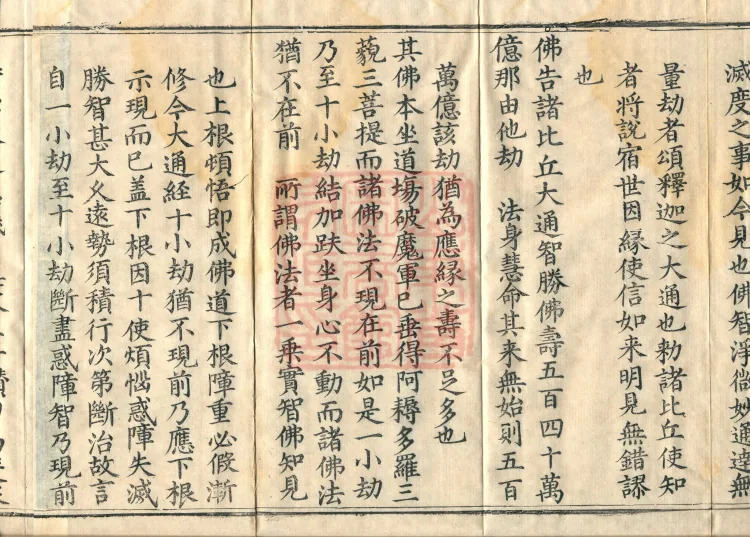 滅度之事如今見也佛智淨微妙通達無
量劫者頌釋迦之大通也勑諸比丘使知
者将說宿世因緣使信如来明見無錯謬
也
佛告諸比丘大通智勝佛壽五百四十萬
億那由他劫　法身慧命其来無始則五百
萬億該劫猶為應緣之壽不足多也
其佛本坐道場破魔軍已垂得阿耨多羅三
藐三菩提而諸佛法不現在前如是一小劫
乃至十小劫結加趺坐身心不動而諸佛法
猶不在前　所謂佛法者一乗實智佛知見
也上根頓悟即成佛道下根障重必假漸
修今大通經十小劫猶不現前乃應下根
示現而已盖下根因十使煩惱惑障失滅
勝智甚大久遠勢須積行次第斷治故言
自一小劫至十小劫斷盡惑障智乃現前